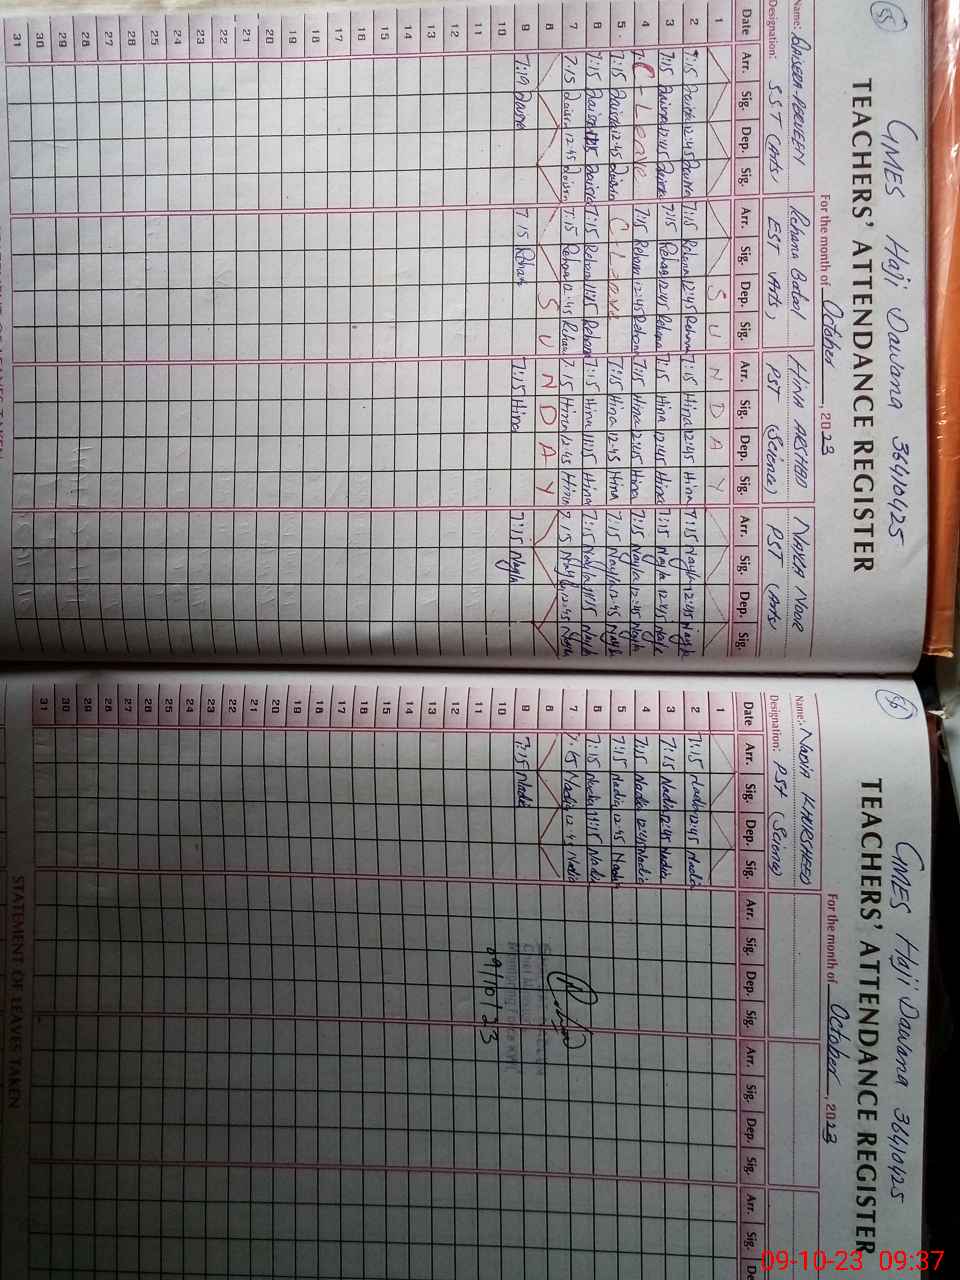 55
GMES Haji Dawana 36410425
TEACHERS' ATTENDANCE REGISTER
For the month of October, 2023
Name: PERVEEN Rehana Batool HINA ARSHAD NAYLA NOOR
Designation: SST (Arts) EST Arts, PST (Science) PST (Arts)
Date Arr. Sig. Dep. Sig. Arr. Sig. Dep. Sig. Arr. Sig. Dep. Sig. Arr. Sig. Dep. Sig.
1 S U N D A Y
2 7:15 12:45 7:15 Rehana 12:45 Rehana 7:15 Hina 12:45 Hina 7:15 Nayla 12:45 Nayla
3 7:15 12:45 7:15 Rehana 12:45 Rehana 7:15 Hina 12:45 Hina 7:15 Nayla 12:45 Nayla
4 C-Leave 7:15 Rehana 12:45 Rehana 7:15 Hina 12:45 Hina 7:15 Nayla 12:45 Nayla
5 7:15 12:45 C-Leave 7:15 Hina 12:45 Hina 7:15 Nayla 12:45 Nayla
6 7:15 7:15 Rehana 11:15 Rehana 7:15 Hina 11:15 Hina 7:15 Nayla 11:15 Nayla
7 7:15 12:45 7:15 Rehana 12:45 Rehana 7:15 Hina 12:45 Hina 7:15 Nayla 12:45 Nayla
8 S U N D A Y
9 7:10 7:15 Rehana 7:15 Hina 7:15 Nayla
10
11
12
13
14
15
16
17
18
19
20
21
22
23
24
25
26
27
28
29
30
31
56
GMES Haji Dawana 36410425
TEACHERS' ATTENDANCE REGISTER
For the month of October, 2023
Name: NADIA KHURSHEED
Designation: PST (Science)
Date Arr. Sig. Dep. Sig. Arr. Sig. Dep. Sig. Arr. Sig. Dep. Sig. Arr. Sig. Dep.
1
2 7:15 Nadia 12:45 Nadia
3 7:15 Nadia 12:45 Nadia
4 7:15 Nadia 12:45 Nadia
5 7:15 Nadia 12:45 Nadia
6 7:15 Nadia 11:15 Nadia
7 7:15 Nadia 12:45 Nadia
8
9 7:15 Nadia
10
09/10/23
11
12
13
14
15
16
17
18
19
20
21
22
23
24
25
26
27
28
29
30
31
STATEMENT OF LEAVES TAKEN
09-10-23 09:37